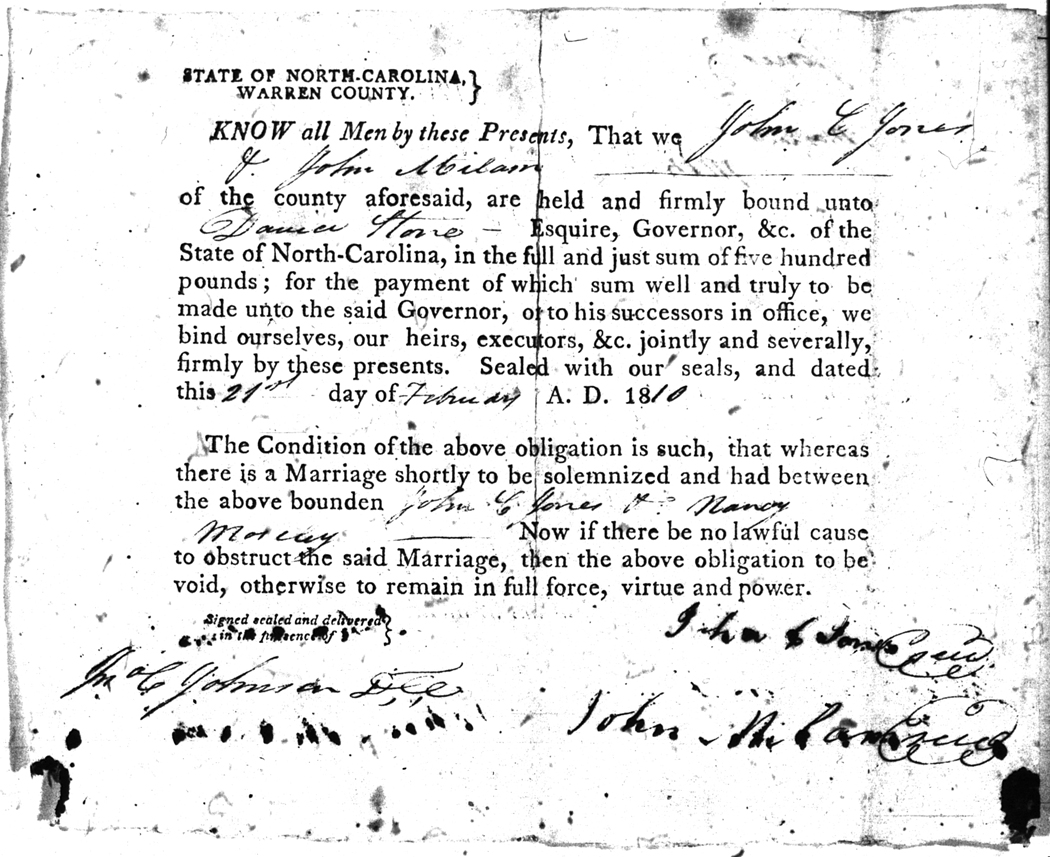 STATE OF NORTH-CAROLINA, }
WARREN COUNTY.
KNOW all Men by these Presents, That we John C Jones
& John Milam
of the county aforesaid, are held and firmly bound unto
David Stone — Esquire, Governor, &c. of the
State of North-Carolina, in the full and just sum of five hundred
pounds; for the payment of which sum well and truly to be
made unto the said Governor, or to his successors in office, we
bind ourselves, our heirs, executors, &c. jointly and severally,
firmly by these presents. Sealed with our seals, and dated
this 21st day of February A. D. 1810
The Condition of the above obligation is such, that whereas
there is a Marriage shortly to be solemnized and had between
the above bounden John C Jones & Nancy
Now if there be no lawful cause
to obstruct the said Marriage, then the above obligation to be
void, otherwise to remain in full force, virtue and power.
Signed sealed and delivered }
in the presence of
John C Jones Seal
Jno C Johnson
John Milam Seal